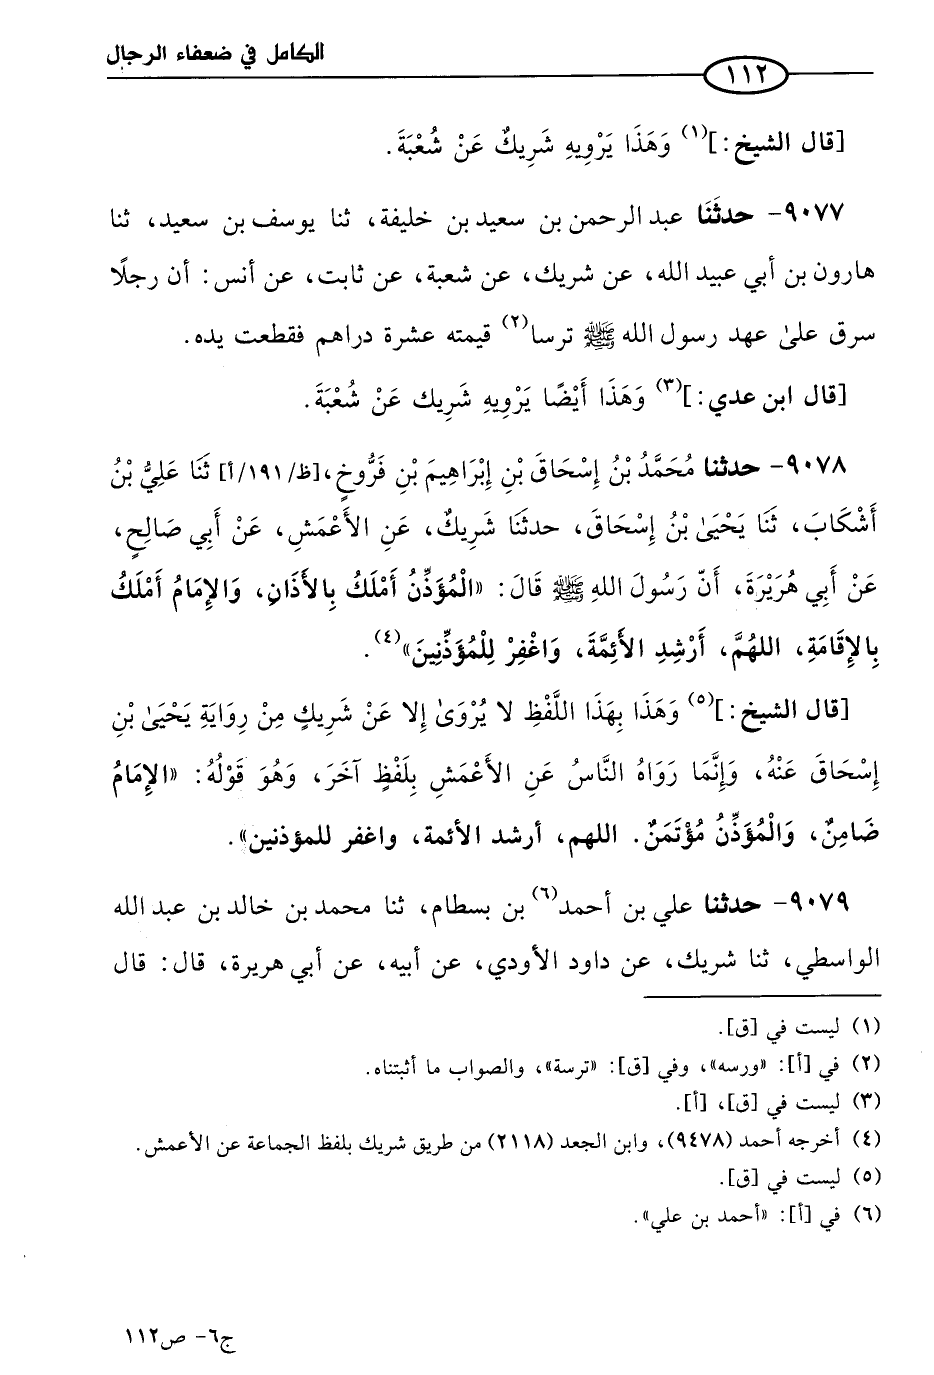 الكامل في ضعفاء الرجال
١١٢
[قال الشيخ:](١) وَهَذَا يَرْوِيهِ شَرِيكٌ عَنْ شُعْبَةَ.
٩٠٧٧- حدثَنَا عبد الرحمن بن سعيد بن خليفة، ثنا يوسف بن سعيد، ثنا
هارون بن أبي عبيد الله، عن شريك، عن شعبة، عن ثابت، عن أنس: أن رجلًا
سرق علىٰ عهد رسول الله ﷺ ترسا(٢) قيمته عشرة دراهم فقطعت يده.
[قال ابن عدي:](٣) وَهَذَا أَيْضًا يَرْوِيهِ شَرِيك عَنْ شُعْبَةَ.
٩٠٧٨- حدثنا مُحَمَّدُ بْنُ إِسْحَاقَ بْنِ إِبْرَاهِيمَ بْنِ فَرُّوخٍ،[ظ/١٩١/أ] ثَنَا عَلِيُّ بْنُ
أَشْكَابَ، ثَنَا يَحْيَىٰ بْنُ إِسْحَاقَ، حدثنَا شَرِيكٌ، عَنِ الأَعْمَشِ، عَنْ أَبِي صَالِحٍ،
عَنْ أَبِي هُرَيْرَةَ، أَنّ رَسُولَ اللهِ ﷺ قَالَ: «الْمُؤَذِّنُ أَمْلَكُ بِالأَذَانِ، وَالإِمَامُ أَمْلَكُ
بِالإِقَامَةِ، اللهُمَّ، أَرْشِدِ الأَئِمَّةَ، وَاغْفِرْ لِلْمُؤَذِّنِينَ»(٤).
[قال الشيخ:](٥) وَهَذَا بِهَذَا اللَّفْظِ لا يُرْوَىٰ إِلا عَنْ شَرِيكٍ مِنْ رِوَايَةِ يَحْيَىٰ بْنِ
إِسْحَاقَ عَنْهُ، وَإِنَّمَا رَوَاهُ النَّاسُ عَنِ الأَعْمَشِ بِلَفْظٍ آخَرَ، وَهُوَ قَوْلُهُ: «الإِمَامُ
ضَامِنٌ، وَالْمُؤَذِّنُ مُؤْتَمَنٌ. اللهم، أرشد الأئمة، واغفر للمؤذنين».
٩٠٧٩- حدثنا علي بن أحمد(٦) بن بسطام، ثنا محمد بن خالد بن عبد الله
الواسطي، ثنا شريك، عن داود الأودي، عن أبيه، عن أبي هريرة، قال: قال
(١) ليست في [ق].
(٢) في [أ]: «ورسه»، وفي [ق]: «ترسة»، والصواب ما أثبتناه.
(٣) ليست في [ق]، [أ].
(٤) أخرجه أحمد (٩٤٧٨)، وابن الجعد (٢١١٨) من طريق شريك بلفظ الجماعة عن الأعمش.
(٥) ليست في [ق].
(٦) في [أ]: «أحمد بن علي».
ج٦- ص١١٢